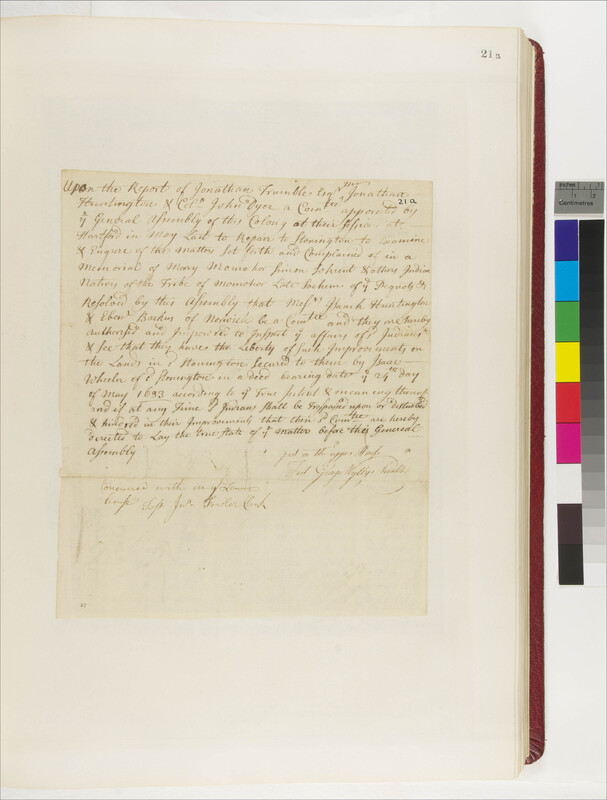 21a
Upon the Report of Jonathan Trumble Esqr Mr Jonathan
Huntington & Colo John Dyer a Comtee appointed by
21a
ye General Assembly of this Colony at their Session At
Hartford in May Last to Repair to Stonington to Examine
& Enquire of the matters Set forth and Complained of in a
Memorial of Mary Momohor Simon Sokient & others Indian
Natives of the Tribe of Momohor Late Sachem of ye Pequots &c
Resolved by this Assembly that Messrs Isaack Huntington
& Ebenr Backus of Norwich be a Comtee and they are hereby
Authorised and Impowred to Inspect ye affairs of sd Indians
& See that they have the Liberty of Such Improvements on
the Lands in sd Stonington Secured to them by Isaac
Wheeler of sd Stonington in a deed bearing date ye 24th day
of May 1683 according to ye True Intent & meaning thereof
and if at any Time sd Indians Shall be Trespassed upon or disturbed
& hindred in their Improvements that their sd Comtee are hereby
directed to Lay the true State of ye matter before this General
Assembly
past in the upper House
Test George Wyllys Secretry
Concurred with in ye Lower
House Test Jno Fowler Clerk